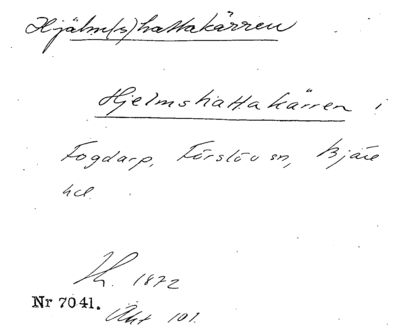 Hjälm(s)hattakärren
Hjelmshattakärren i
Fogdarp, Förslöv sn, Bjäre
hd.
Th. 1872
Nr 7041.
Akt 101.